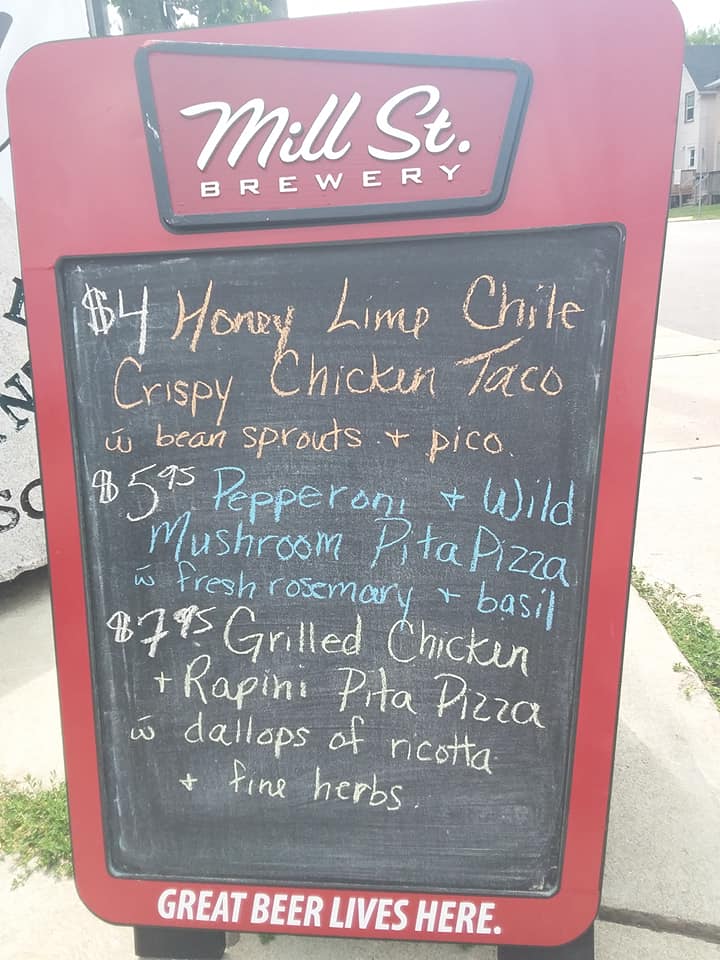 Mill St.
BREWERY
$4 Honey Lime Chile
Crispy Chicken Taco
w̄ bean sprouts + pico.
$5.95 Pepperoni + Wild
Mushroom Pita Pizza
w̄ fresh rosemary + basil
$7.95 Grilled Chicken
+ Rapini Pita Pizza
w̄ dallops of ricotta
+ fine herbs.
GREAT BEER LIVES HERE.